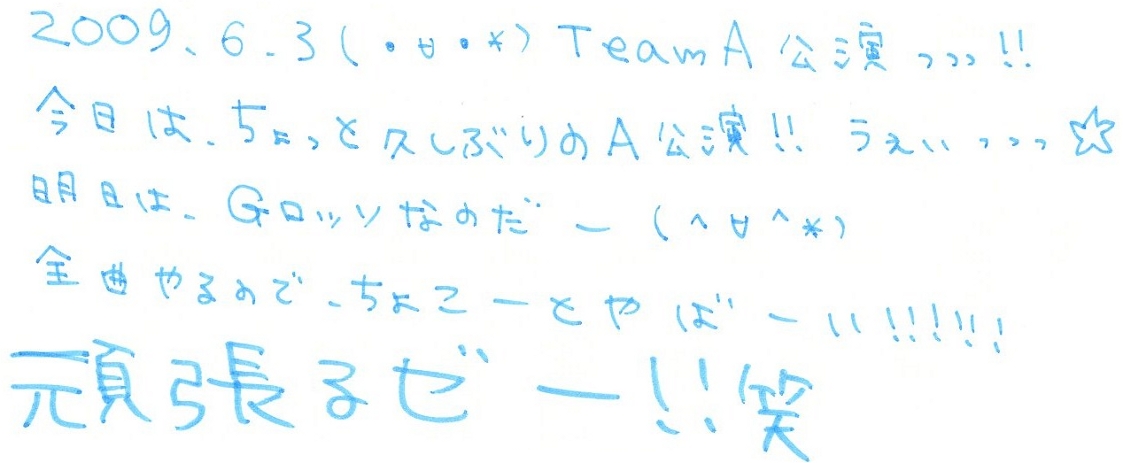 2009.6.3(・∀・*) TeamA 公演っっっ!!
今日は、ちょっと久しぶりのA公演!! うぇぃぃっっっ☆
明日は、Gロッソなのだー (^∀^*)
全曲やるので、ちょこーとやばーい!!!!!
頑張るぜー!!笑